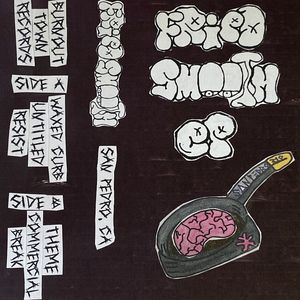 BURNOUT
TOWN
RECORDS
SIDE A
WAXED CURBS
UNTITLED
RESIST
SIDE B
THEME
COMMERCIAL
BREAK
FRIED SMOOTH
SAN PEDRO, CA
FRIED
SMOOTH
EP